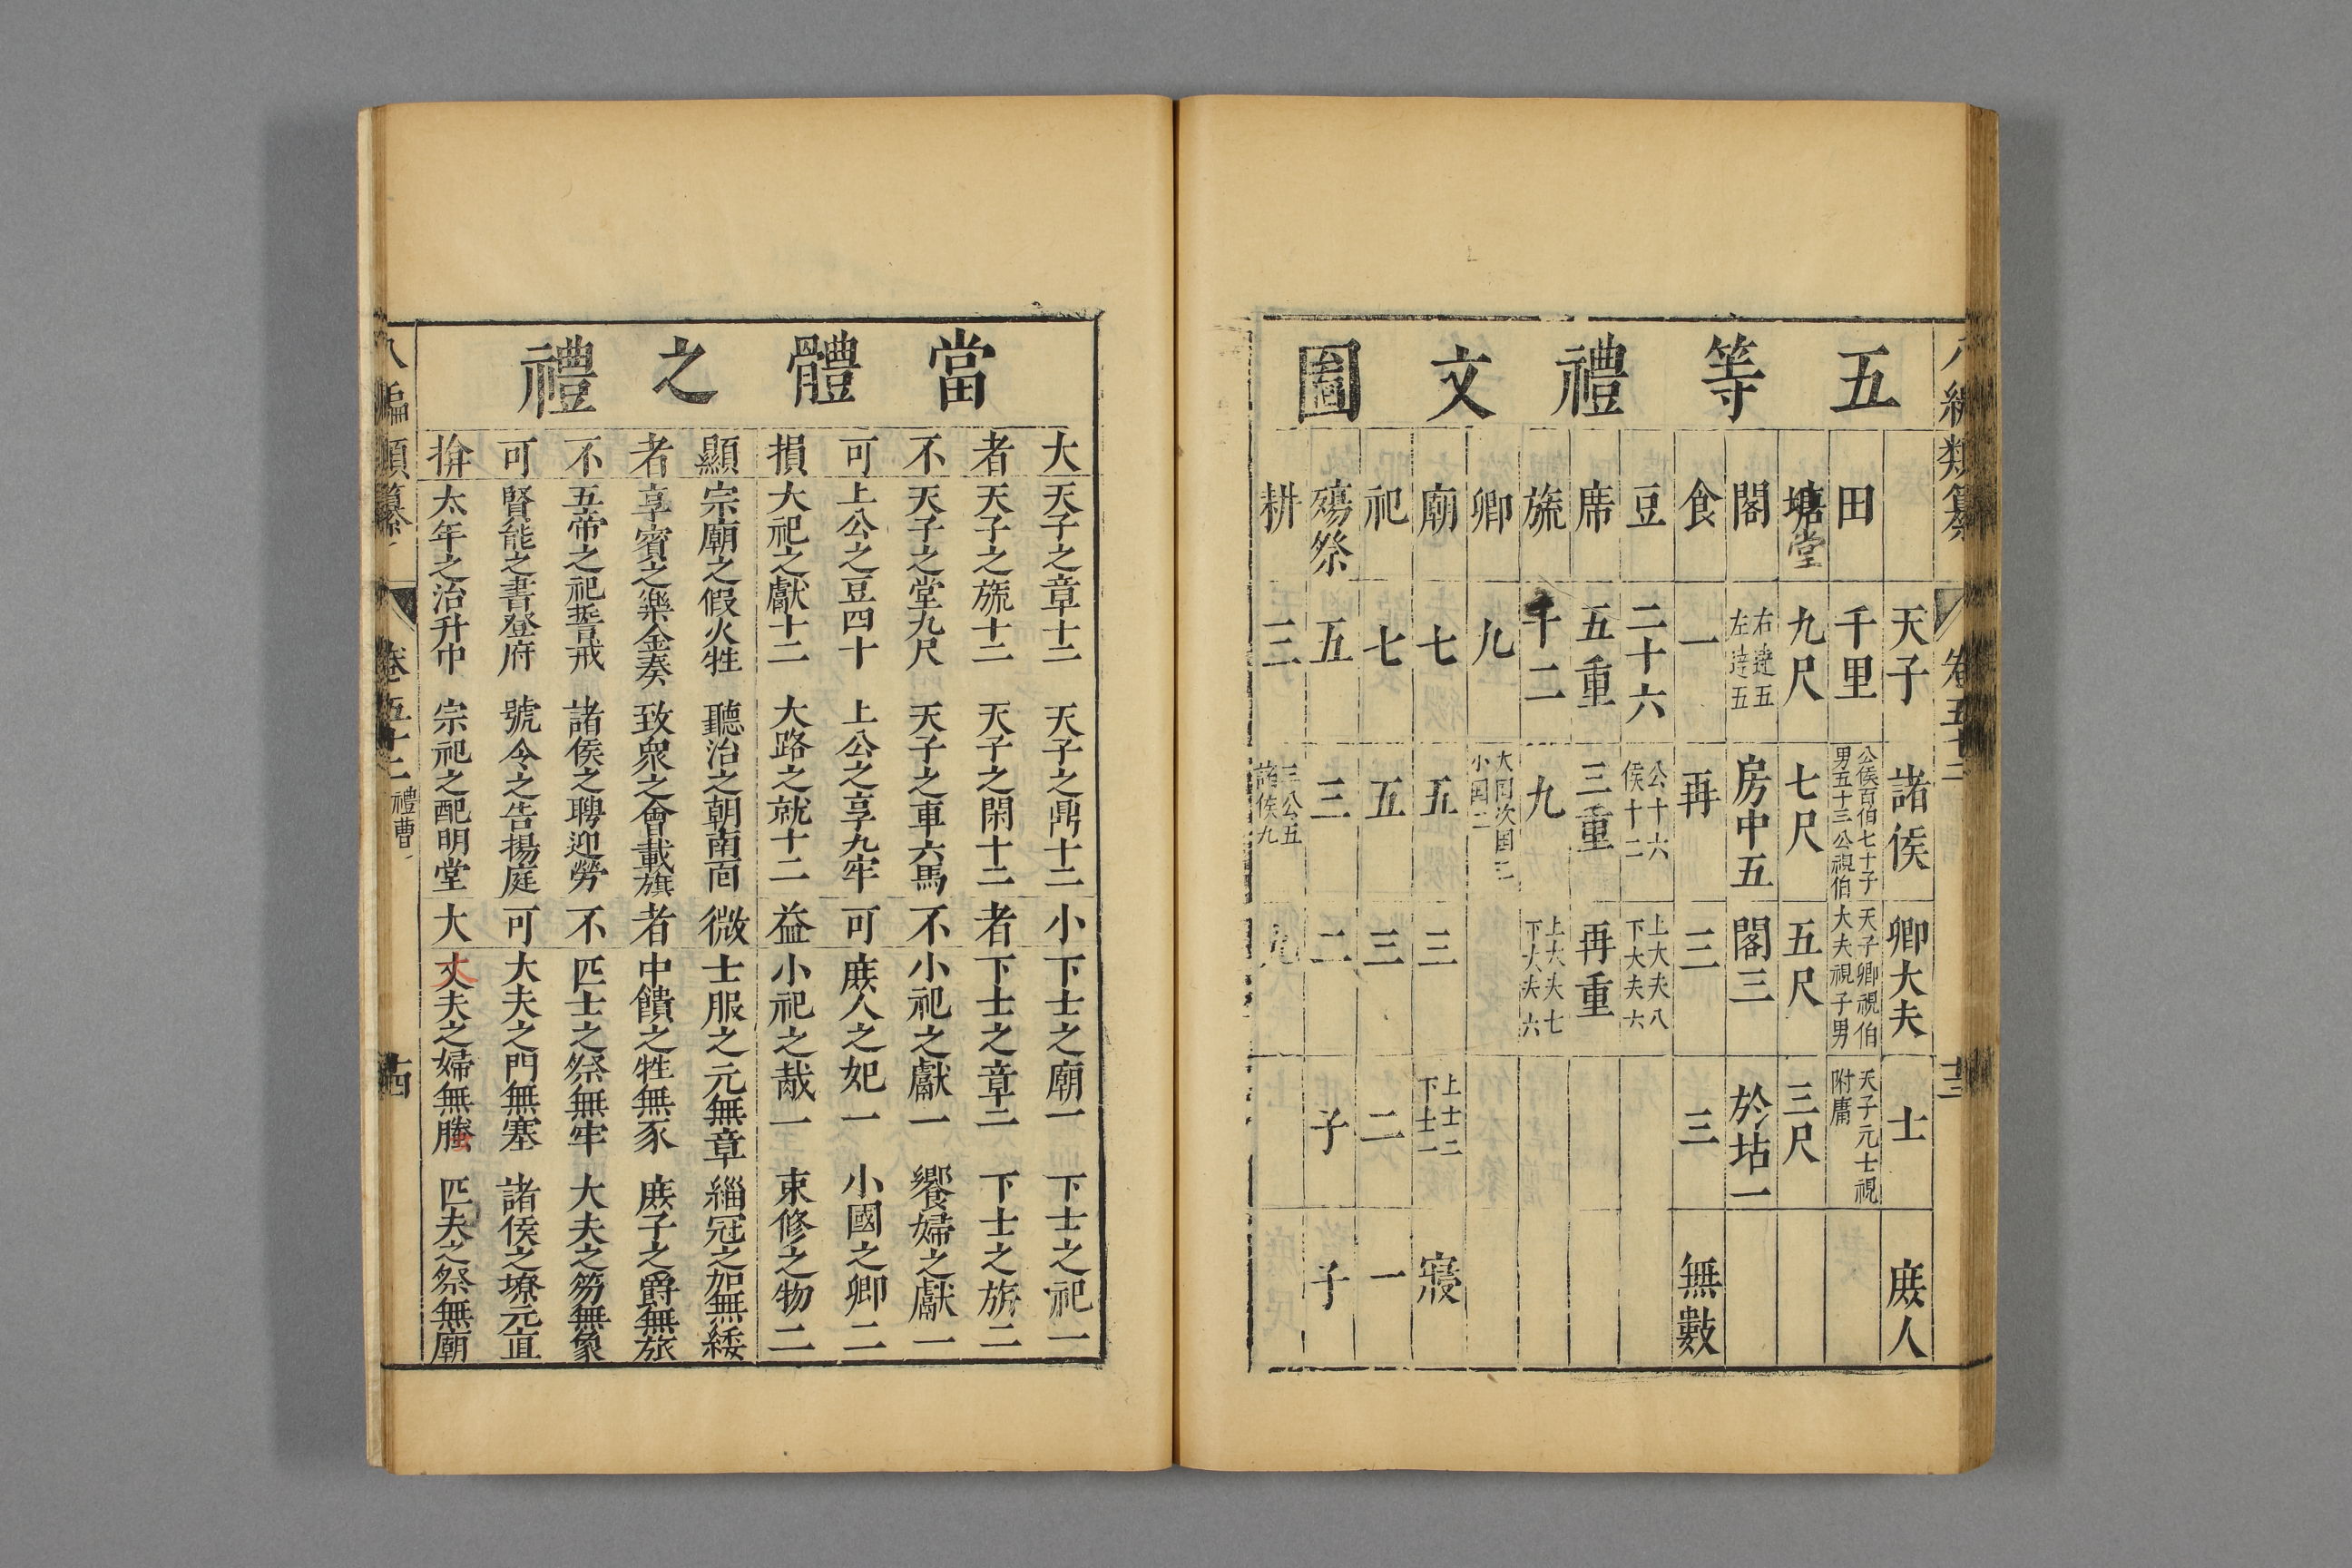 八編類纂 卷五十二 十三
五等禮文圖
天子 諸侯 卿大夫 士 庶人
田 千里 公侯百伯七十子男五十三公視伯 天子卿視伯大夫視子男 天子元士視附庸
堂 九尺 七尺 五尺 三尺
閣 右達五左達五 房中五 閣三 於坫一
食 一 再 三 三 無數
豆 二十六 公十六侯十二 上大夫八下大夫六
席 五重 三重 再重
旒 十二 九 上大夫七下大夫六
卿 九 大國次國三小國二
廟 七 五 三 上士二下士一 寢
祀 七 五 三 二 一
殤祭 五 三 二 子 子
耕 三 三公五諸侯九 九
當體之禮
大 天子之章十二 天子之鼎十二 小 下士之廟一 下士之祀一
者 天子之旒十二 天子之閑十二 者 下士之章二 下士之旂二
不 天子之堂九尺 天子之車六馬 不 小祀之獻一 饗婦之獻一
可 上公之豆四十 上公之享九牢 可 庶人之妃一 小國之卿二
損 大祀之獻十二 大路之就十二 益 小祀之胾一 束修之物二
顯 宗廟之假火牲 聽治之朝南面 微 士服之元無章 緇冠之加無緌
者 享賓之樂金奏 致衆之會載旗 者 中饋之牲無豕 庶子之爵無旅
不 五帝之祀誓戒 諸侯之聘迎勞 不 匹士之祭無牢 大夫之笏無象
可 賢能之書登府 號令之告揚庭 可 大夫之門無塞 諸侯之墩元亘
揜 太年之治升中 宗祀之配明堂 大 大夫之婦無媵 匹夫之祭無廟
八編類纂 卷五十二 禮曹 十四